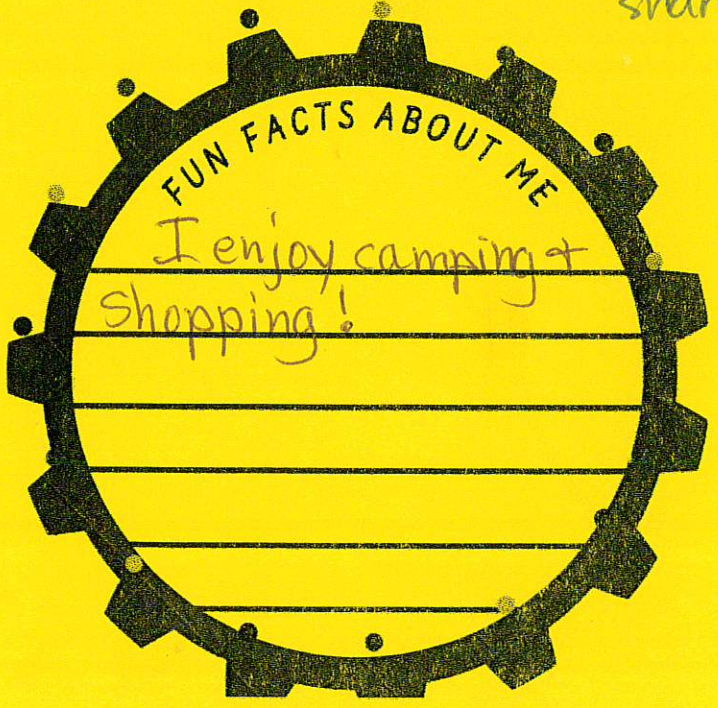 FUN FACTS ABOUT ME
I enjoy camping +
Shopping!